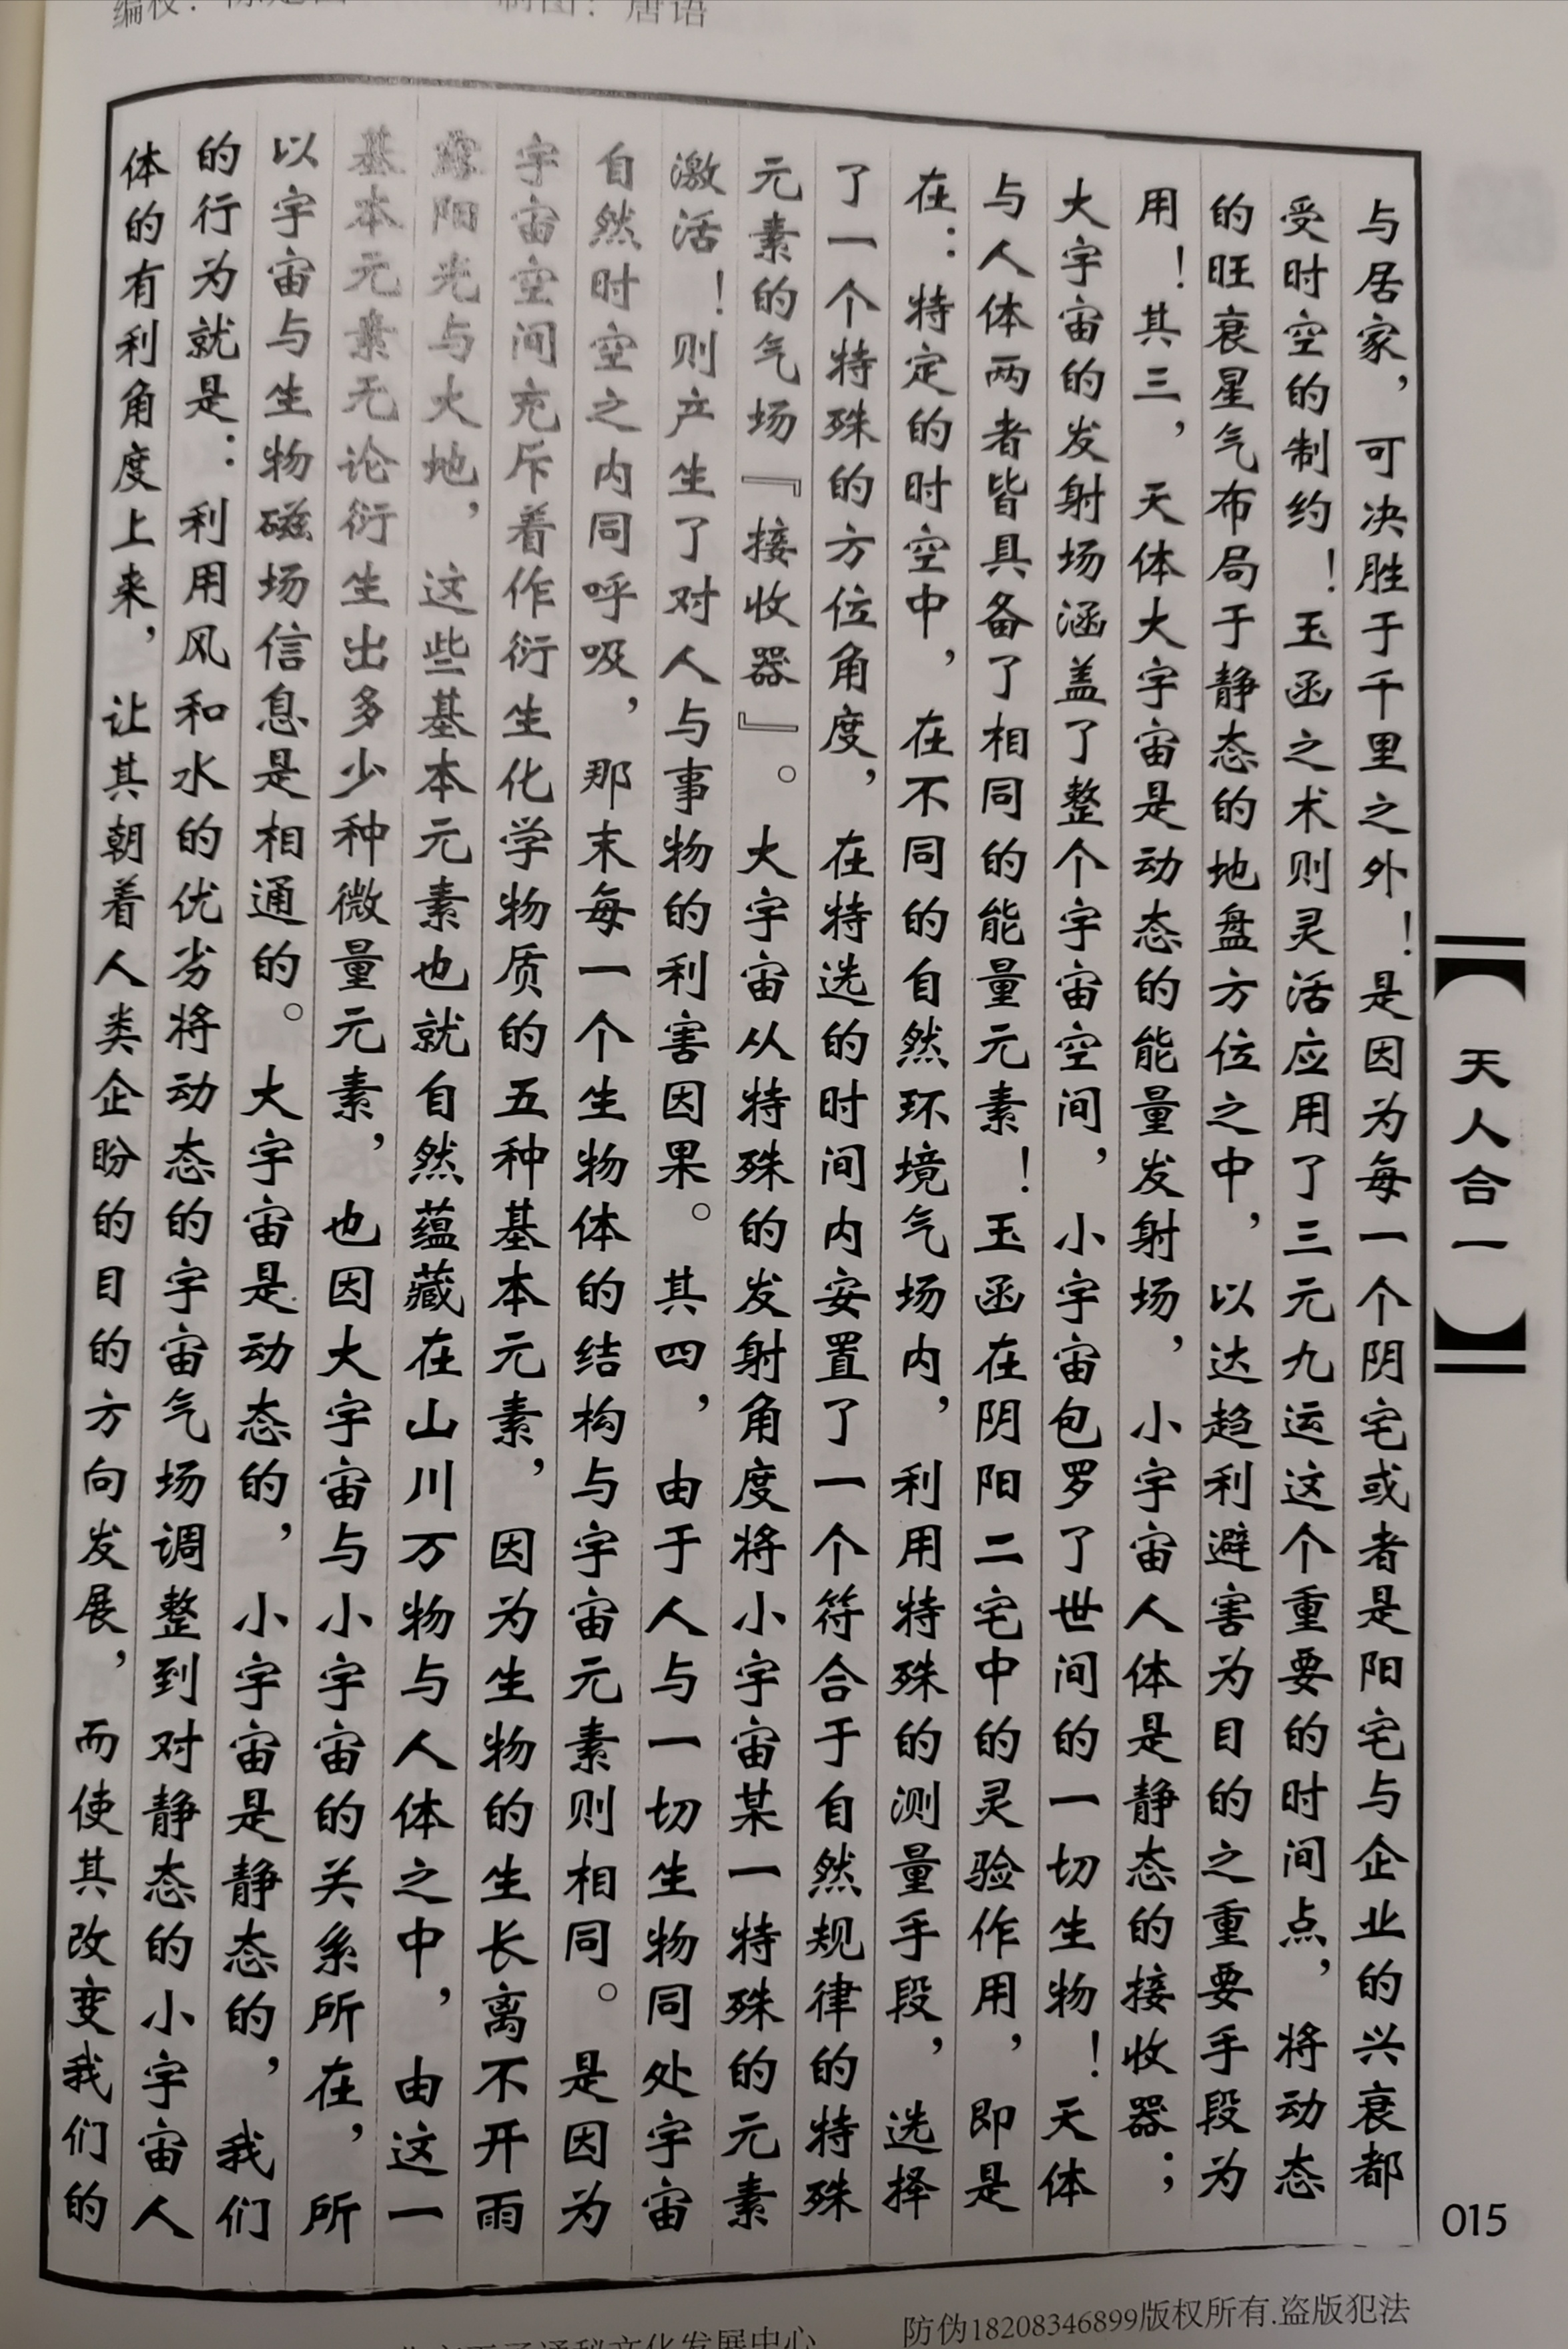 制图：唐语
【天人合一】
与居家，可决胜于千里之外！是因为每一个阴宅或者是阳宅与企业的兴衰都
受时空的制约！玉函之术则灵活应用了三元九运这个重要的时间点，将动态
的旺衰星气布局于静态的地盘方位之中，以达趋利避害为目的之重要手段为
用！其三，天体大宇宙是动态的能量发射场，小宇宙人体是静态的接收器；
大宇宙的发射场涵盖了整个宇宙空间，小宇宙包罗了世间的一切生物！天体
与人体两者皆具备了相同的能量元素！玉函在阴阳二宅中的灵验作用，即是
在：特定的时空中，在不同的自然环境气场内，利用特殊的测量手段，选择
了一个特殊的方位角度，在特选的时间内安置了一个符合于自然规律的特殊
元素的气场『接收器』。大宇宙从特殊的发射角度将小宇宙某一特殊的元素
激活！则产生了对人与事物的利害因果。其四，由于人与一切生物同处宇宙
自然时空之内同呼吸，那末每一个生物体的结构与宇宙元素则相同。是因为
宇宙空间充斥着作衍生化学物质的五种基本元素，因为生物的生长离不开雨
露阳光与大地，这些基本元素也就自然蕴藏在山川万物与人体之中，由这一
基本元素无论衍生出多少种微量元素，也因大宇宙与小宇宙的关系所在，所
以宇宙与生物磁场信息是相通的。大宇宙是动态的，小宇宙是静态的，我们
的行为就是：利用风和水的优劣将动态的宇宙气场调整到对静态的小宇宙人
体的有利角度上来，让其朝着人类企盼的目的方向发展，而使其改变我们的
015
防伪18208346899版权所有.盗版犯法